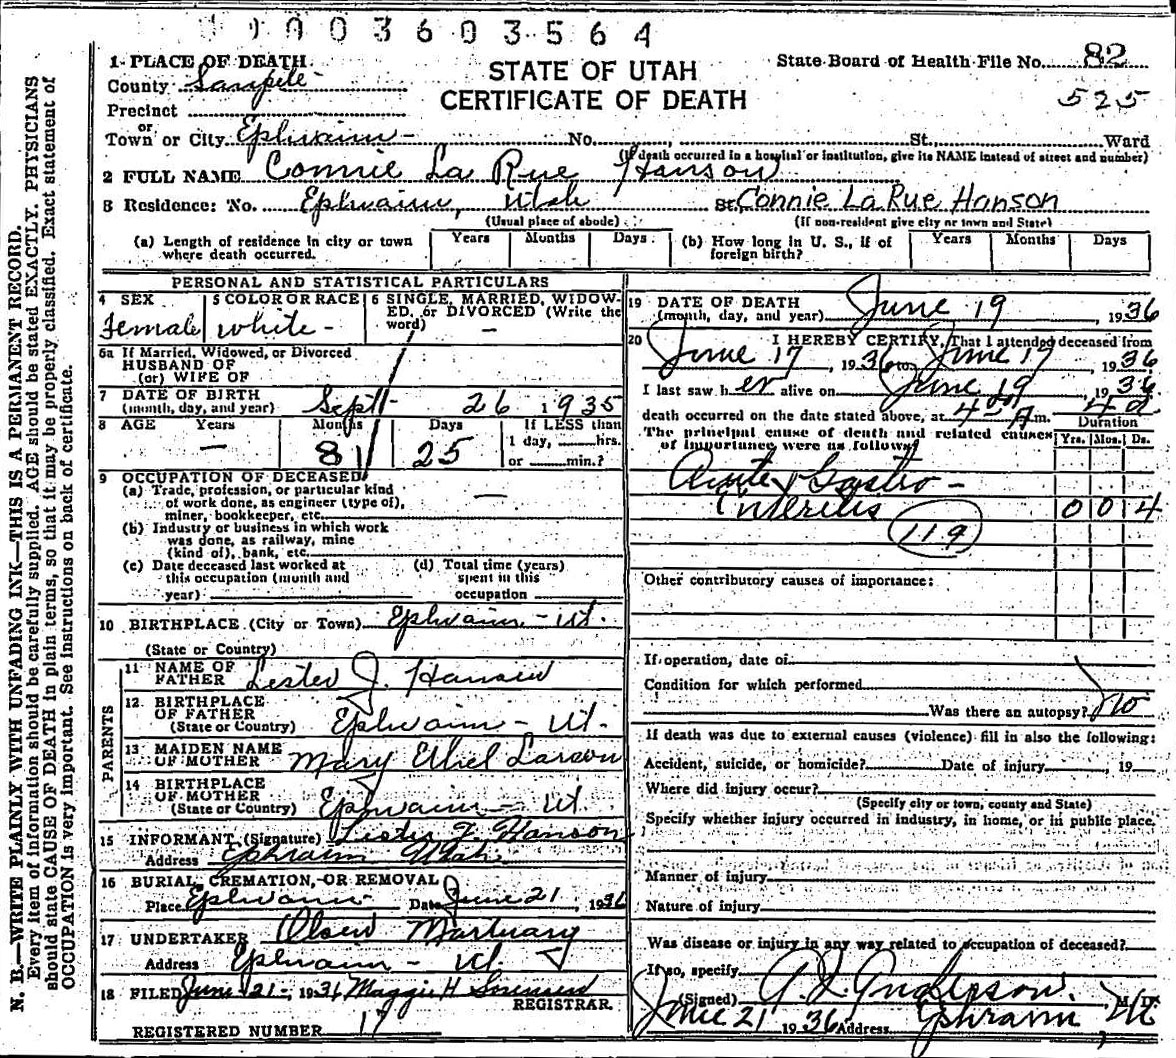 1003603564
N. B.—WRITE PLAINLY WITH UNFADING INK—THIS IS A PERMANENT RECORD.
Every item of information should be carefully supplied. AGE should be stated EXACTLY. PHYSICIANS
should state CAUSE OF DEATH in plain terms, so that it may be properly classified. Exact statement of
OCCUPATION is very important. See instructions on back of certificate.
STATE OF UTAH
CERTIFICATE OF DEATH
State Board of Health File No. 82
525
1 PLACE OF DEATH
County Sanpete
Precinct
Town or or City Ephraim No. St. Ward
(If death occurred in a hospital or institution, give its NAME instead of street and number)
2 FULL NAME Connie La Rue Hanson
3 Residence: No. Ephraim, Utah St. Connie LaRue Hanson
(Usual place of abode) (If non-resident give city or town and State)
(a) Length of residence in city or town where death occurred. Years Months Days
(b) How long in U. S., if of foreign birth? Years Months Days
PERSONAL AND STATISTICAL PARTICULARS
4 SEX Female
5 COLOR OR RACE white
6 SINGLE, MARRIED, WIDOWED, or DIVORCED (Write the word) —
6a If Married, Widowed, or Divorced
HUSBAND OF
(or) WIFE OF
7 DATE OF BIRTH
(month, day, and year) Sept 26 1935
8 AGE Years — Months 8 Days 25
If LESS than
1 day, hrs.
or min.?
9 OCCUPATION OF DECEASED
(a) Trade, profession, or particular kind
of work done, as engineer (type of),
miner, bookkeeper, etc. —
(b) Industry or business in which work
was done, as railway, mine
(kind of), bank, etc.
(c) Date deceased last worked at
this occupation (month and
year)
(d) Total time (years)
spent in this
occupation
10 BIRTHPLACE (City or Town) Ephraim - Ut.
(State or Country)
PARENTS
11 NAME OF
FATHER Lester J. Hansen
12 BIRTHPLACE
OF FATHER
(State or Country) Ephraim - Ut.
13 MAIDEN NAME
OF MOTHER Mary Ethel Larson
14 BIRTHPLACE
OF MOTHER
(State or Country) Ephraim - Ut.
15 INFORMANT (Signature) Lester J. Hanson
Address Ephraim Utah
16 BURIAL, CREMATION, OR REMOVAL
Place Ephraim Date June 21, 1936
17 UNDERTAKER Olsen Mortuary
Address Ephraim - Ut
18 FILED June 21-, 1936 Maggie H Sorensen
REGISTRAR.
REGISTERED NUMBER 17
19 DATE OF DEATH
(month, day, and year) June 19, 1936
20 I HEREBY CERTIFY, That I attended deceased from
June 17, 1936 to June 19, 1936
I last saw her alive on June 19, 1936
death occurred on the date stated above, at 4 A m. 4 d
The principal cause of death and related causes
of importance were as follows:
Duration
Yrs. Mos. Ds.
Acute Gastro-
Enteritis 0 0 4
119
Other contributory causes of importance:
If operation, date of
Condition for which performed
Was there an autopsy? no
If death was due to external causes (violence) fill in also the following:
Accident, suicide, or homicide? Date of injury , 19
Where did injury occur?
(Specify city or town, county and State)
Specify whether injury occurred in industry, in home, or in public place.
Manner of injury
Nature of injury
Was disease or injury in any way related to occupation of deceased?
If so, specify
(Signed) A. J. Anderson, M. D.
June 21 1936 Address Ephraim, Ut